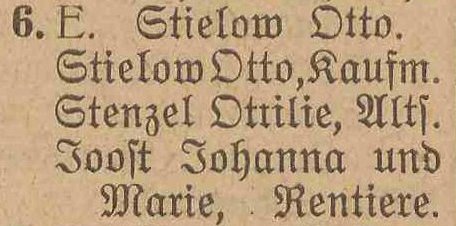 6. E. Stielow Otto.
Stielow Otto, Kaufm.
Stenzel Ottilie, Alts.
Joost Johanna und
Marie, Rentiere.